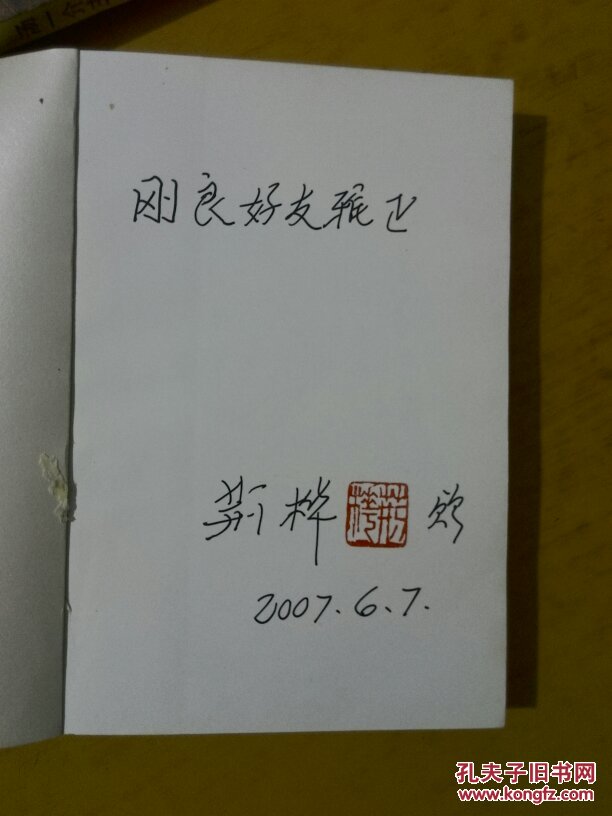 刚良好友雅正
荆桦 赠
2007.6.7.
孔夫子旧书网
www.kongfz.com